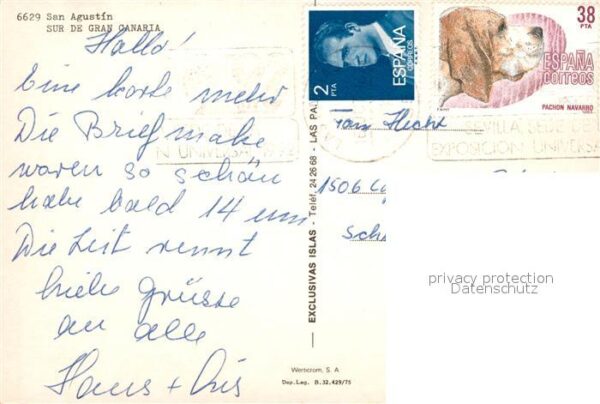 6629 San Agustín
SUR DE GRAN CANARIA
Hallo!
Eine Karte mehr
Die Briefmake
waren so schön
habe bald 14 um
Die Zeit rennt
viele Grüsse
an alle
Hans + Iris
EXCLUSIVAS ISLAS - Teléf. 24 26 68 - LAS PA
Werticrom, S. A.
Dep. Leg. B. 32.429/75
2
PTA
ESPAÑA
CORREOS
38
PTA
ESPAÑA
correos
PACHON NAVARRO
SEVILLA, SEDE DE
EXPOSICION UNIVERS
N UNIVERSA
Hecht
1506
Sch
privacy protection
Datenschutz